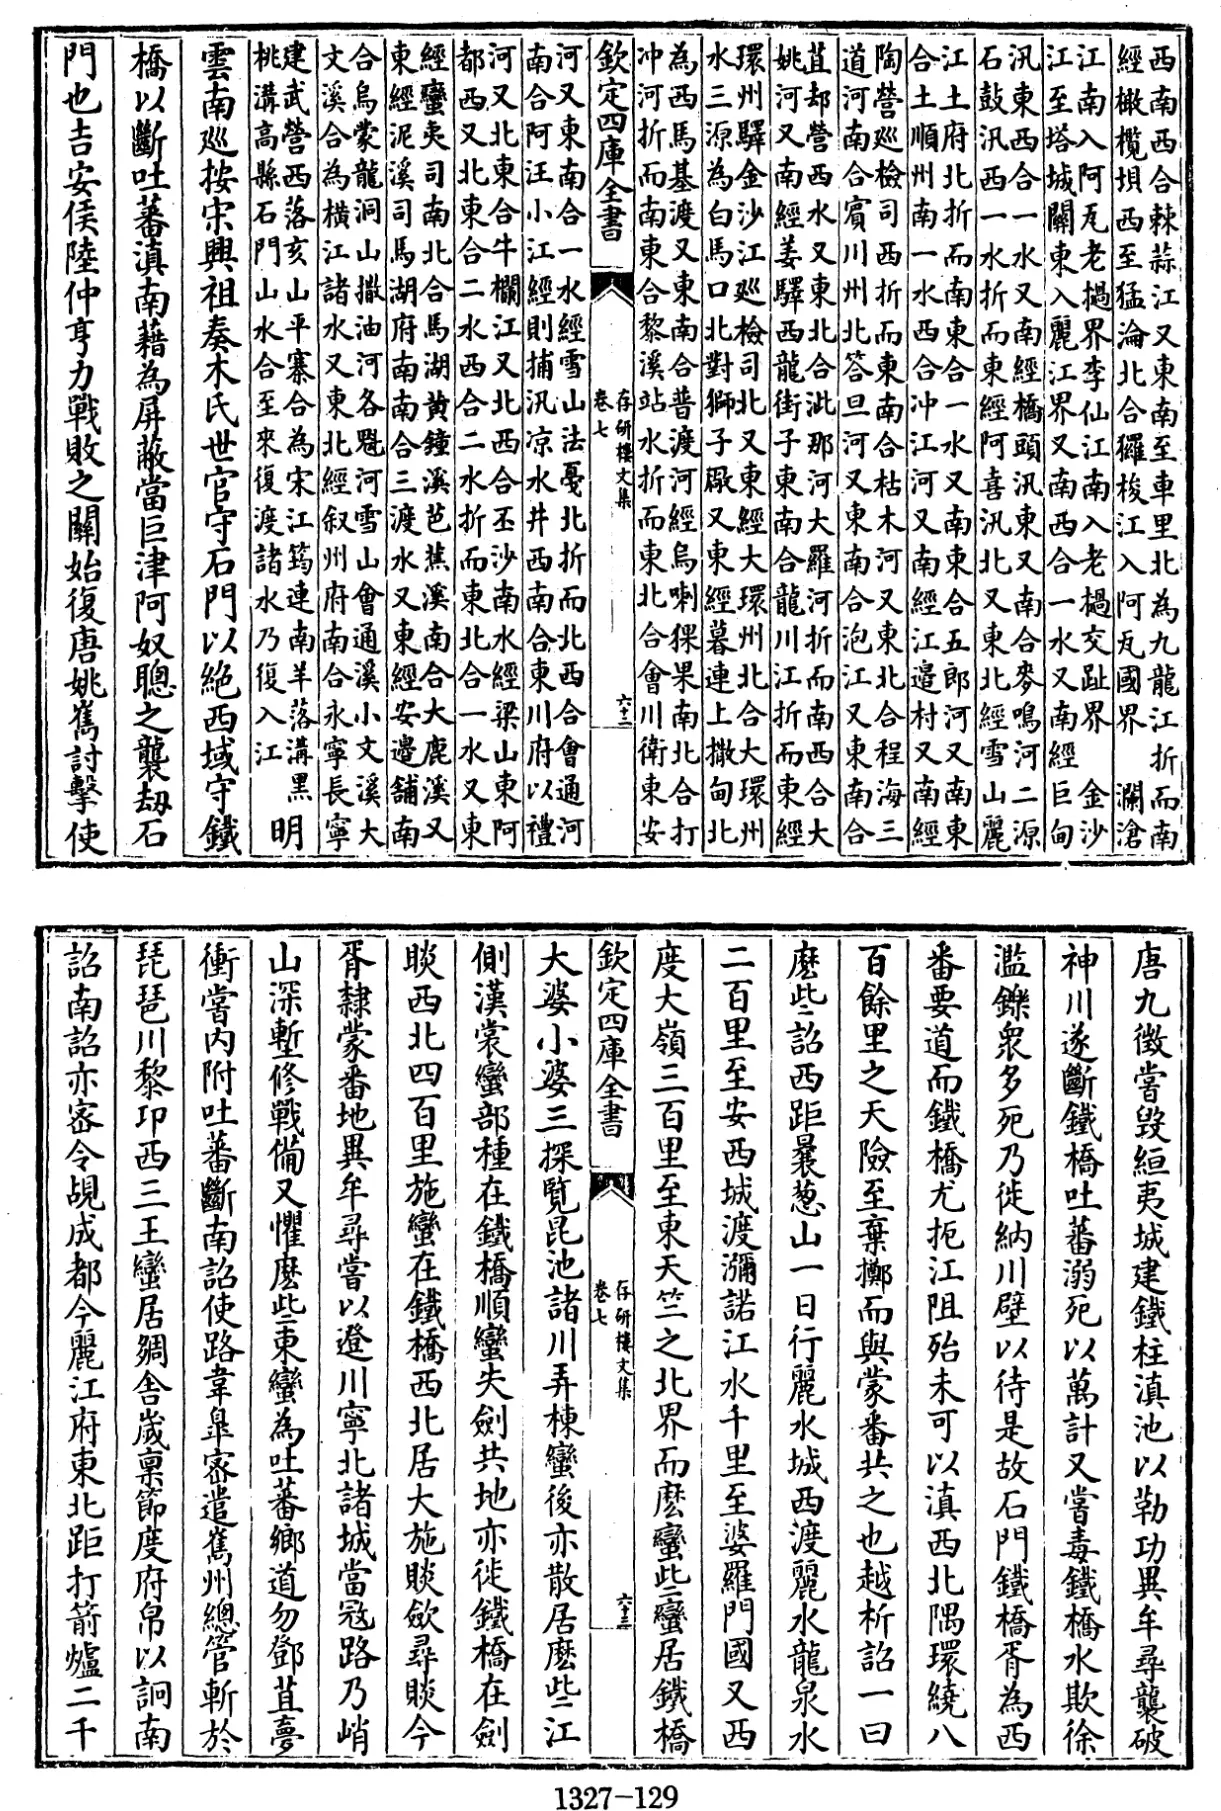 西南西合棘蒜江又東南至車里北為九龍江折而南
經橄欖垻西至猛淪北合玀梭江入阿瓦國界　瀾滄
江南入阿瓦老撾界李仙江南入老撾交趾界　金沙
江至塔城關東入麗江界又南西合一水又南經巨甸
汛東西合一水又南經橋頭汛東又南合麥鳴河二源
石鼓汛西一水折而東經阿喜汛北又東北經雪山麗
江土府北折而南東合一水又南東合五郎河又南東
合土順州南一水西合冲江河又南經江邉村又南經
陶營廵檢司西折而東南合枯木河又東北合程海三
道河南合賓川州北答旦河又東南合泡江又東南合
苴却營西水又東北合泚那河大羅河折而南西合大
姚河又南經姜驛西龍街子東南合龍川江折而東經
環州驛金沙江廵檢司北又東經大環州北合大環州
水三源為白馬口北對獅子厰又東經暮連上撒甸北
為西馬基渡又東南合普渡河經烏喇猓果南北合打
冲河折而南東合黎溪站水折而東北合會川衛東安
欽定四庫全書
存研樓文集
卷七
六十二
河又東南合一水經雪山法戞北折而北西合會通河
南合阿汪小江經則捕汛凉水井西南合東川府以禮
河又北東合牛欄江又北西合丕沙南水經梁山東阿
都西又北東合二水西合二水折而東北合一水又東
經蠻夷司南北合馬湖黄鐘溪芭蕉溪南合大鹿溪又
東經泥溪司馬湖府南南合三渡水又東經安邉舖南
合烏蒙龍洞山撒油河各魁河雪山會通溪小文溪大
文溪合為横江諸水又東北經叙州府南合永寧長寧
建武營西落亥山平寨合為宋江筠連南羊落溝黑
桃溝高縣石門山水合至來復渡諸水乃復入江　明
雲南廵按宋興祖奏木氏世官守石門以絶西域守鐵
橋以斷吐蕃滇南藉為屏蔽當巨津阿奴聰之襲刼石
門也吉安侯陸仲亨力戰敗之關始復唐姚嶲討擊使
唐九徵嘗毁絙夷城建鐵柱滇池以勒功異牟尋襲破
神川遂斷鐵橋吐蕃溺死以萬計又嘗毒鐵橋水欺徐
濫鑠衆多死乃徙納川壁以待是故石門鐵橋胥為西
番要道而鐵橋尤扼江阻殆未可以滇西北隅環繞八
百餘里之天險至棄擲而與蒙番共之也越析詔一曰
麽些詔西距曩葱山一日行麗水城西渡麗水龍泉水
二百里至安西城渡瀰諾江水千里至婆羅門國又西
度大嶺三百里至東天竺之北界而麽蠻些蠻居鐵橋
欽定四庫全書
存研樓文集
卷七
六十三
大婆小婆三探覽昆池諸川弄棟蠻後亦散居麽些江
側漢裳蠻部種在鐵橋順蠻失劍共地亦徙鐵橋在劍
睒西北四百里施蠻在鐵橋西北居大施睒歛尋睒今
胥隸蒙番地異牟尋嘗以邆川寧北諸城當冦路乃峭
山深塹修戰備又懼麽些東蠻為吐蕃鄉道勿鄧苴夢
衝嘗内附吐蕃斷南詔使路韋臯密遣嶲州總管斬於
琵琶川黎卭西三王蠻居獨舍嵗稟節度府帛以詗南
詔南詔亦密令覘成都今麗江府東北距打箭爐二千
1327-129